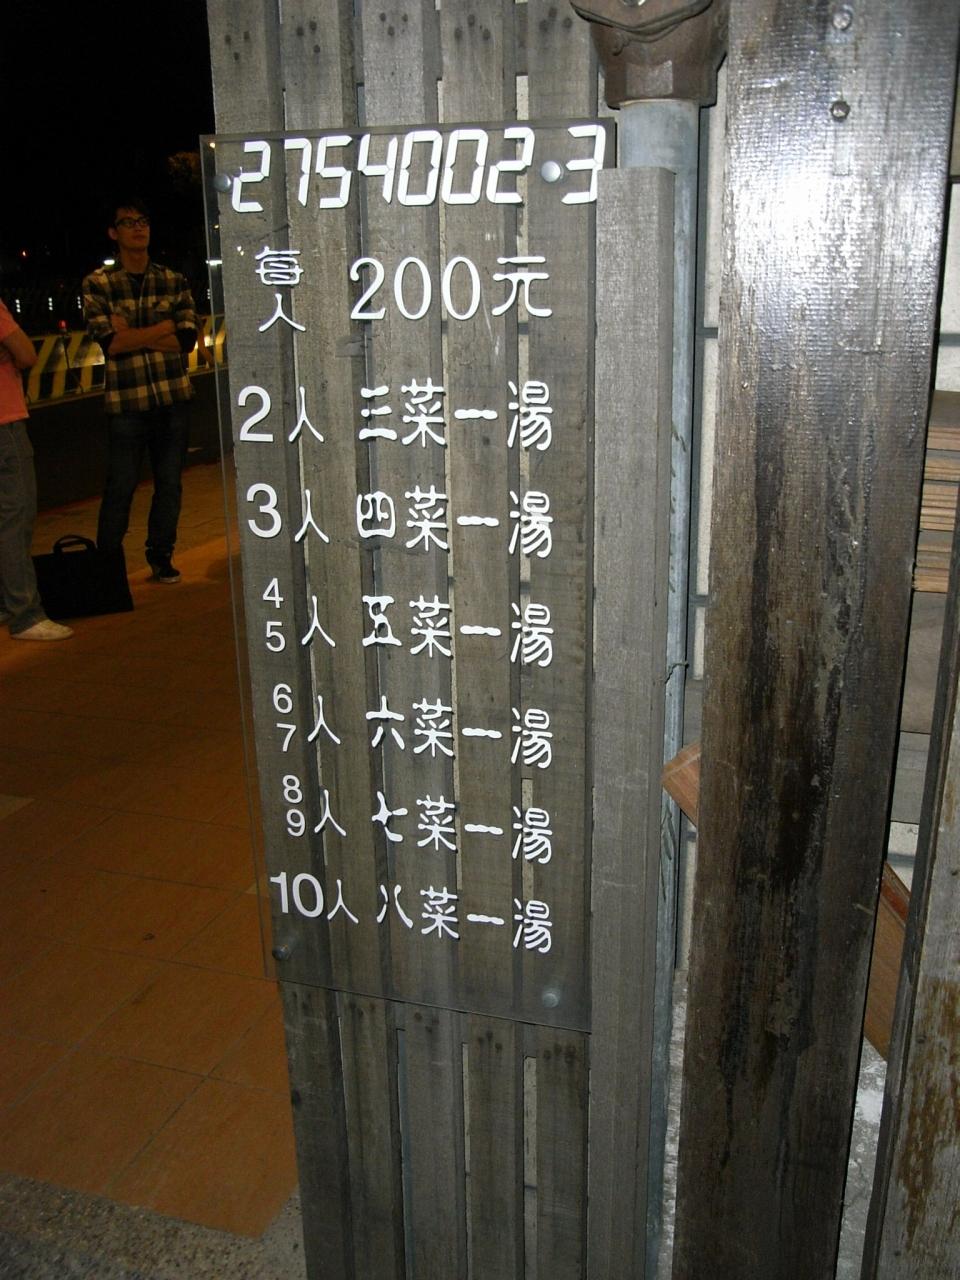 2754002-3
每人 200元
2人 三菜一湯
3人 四菜一湯
4 5人 五菜一湯
6 7人 六菜一湯
8 9人 七菜一湯
10人 八菜一湯